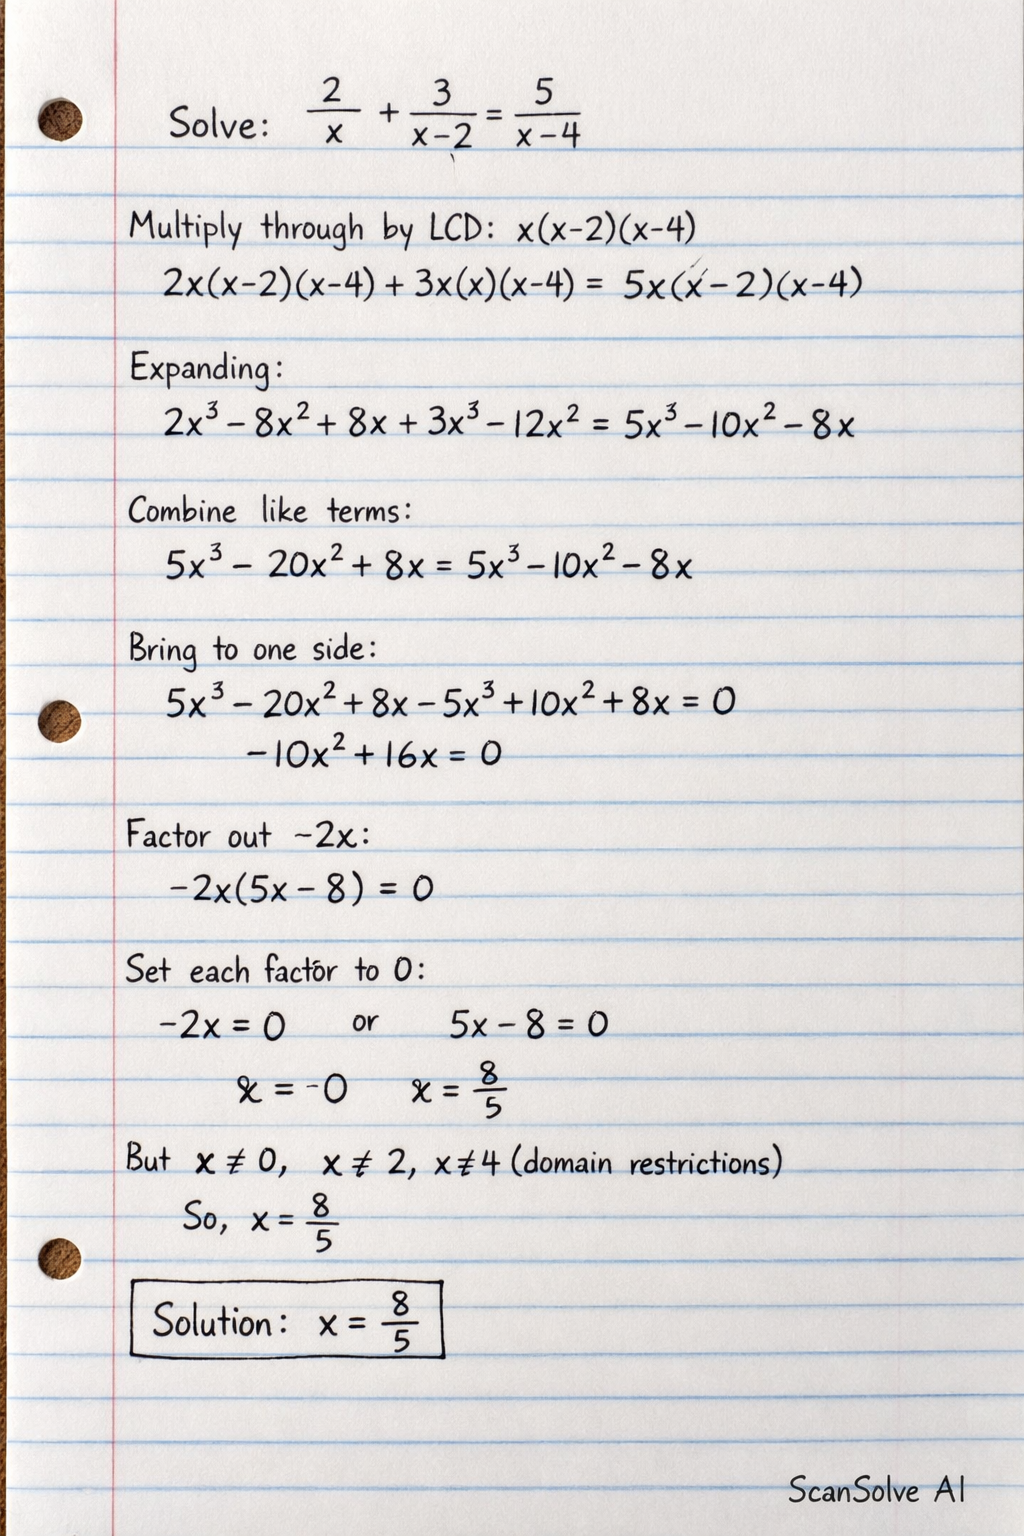 Solve: 2/x + 3/(x-2) = 5/(x-4)
Multiply through by LCD: x(x-2)(x-4)
2x(x-2)(x-4) + 3x(x)(x-4) = 5x(x-2)(x-4)
Expanding:
2x³ - 8x² + 8x + 3x³ - 12x² = 5x³ - 10x² - 8x
Combine like terms:
5x³ - 20x² + 8x = 5x³ - 10x² - 8x
Bring to one side:
5x³ - 20x² + 8x - 5x³ + 10x² + 8x = 0
-10x² + 16x = 0
Factor out -2x:
-2x(5x - 8) = 0
Set each factor to 0:
-2x = 0 or 5x - 8 = 0
x = -0 x = 8/5
But x ≠ 0, x ≠ 2, x ≠ 4 (domain restrictions)
So, x = 8/5
Solution: x = 8/5
ScanSolve AI